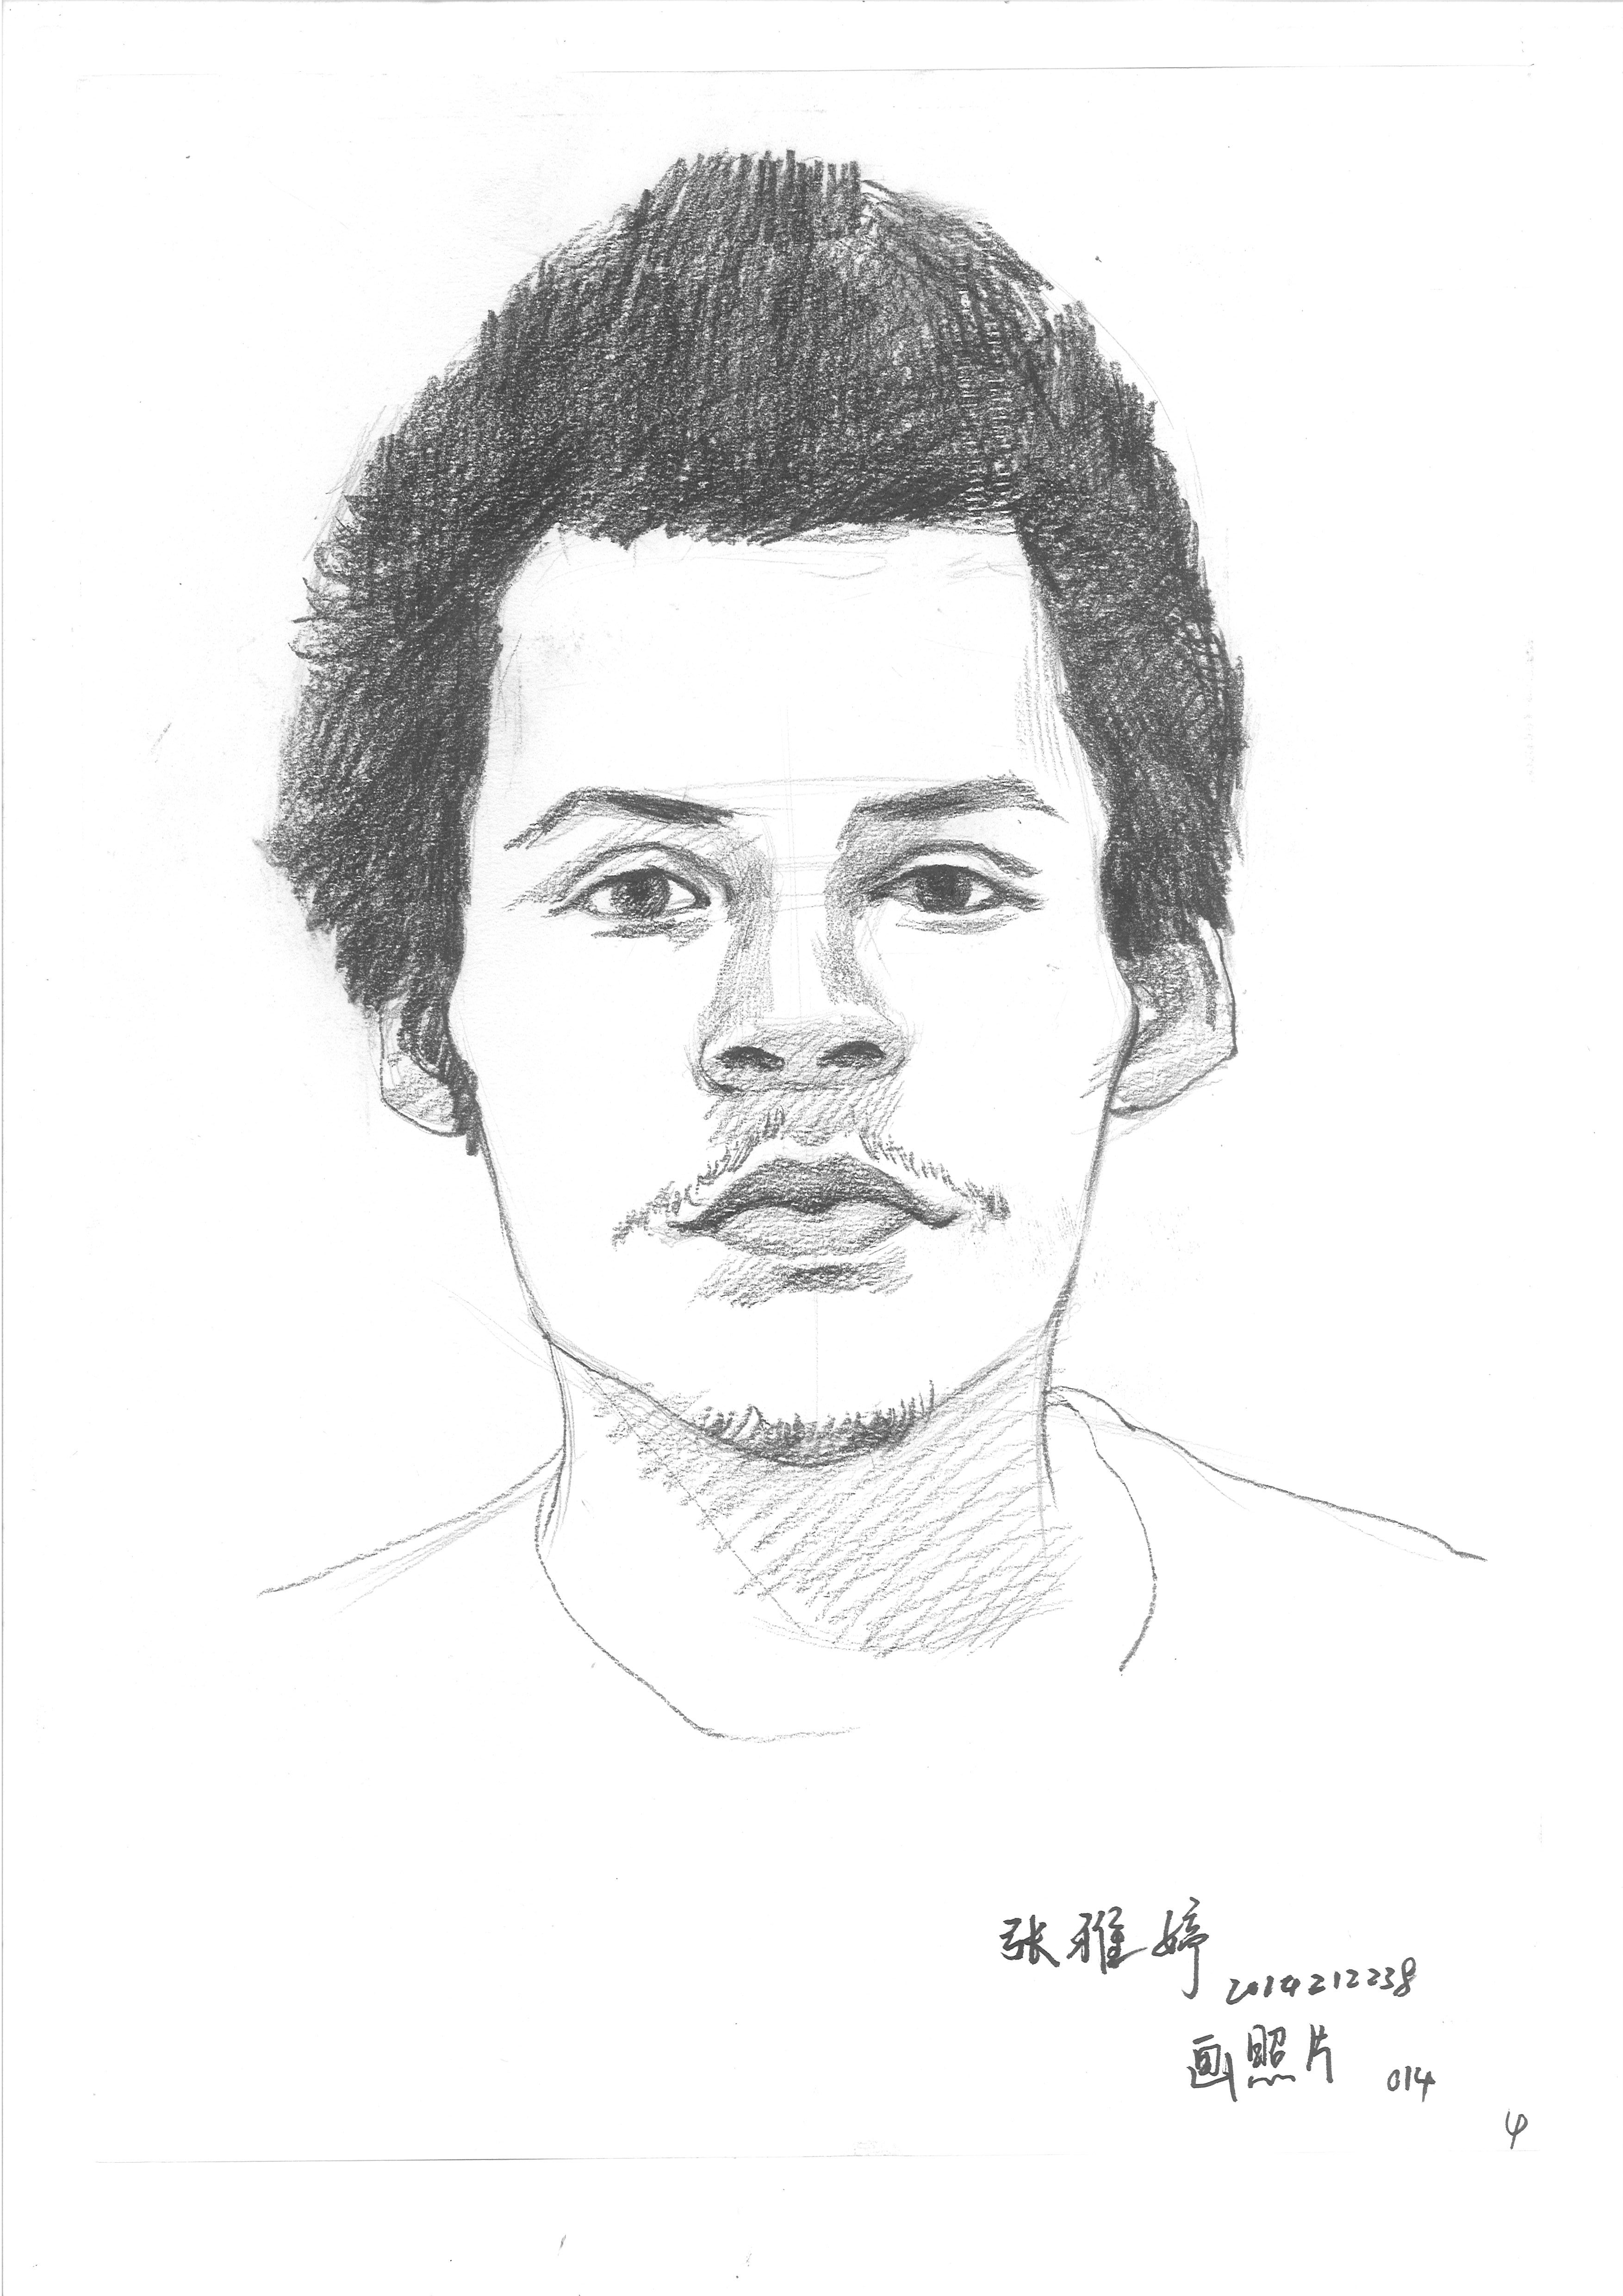 张雅婷
2014212238
画照片 014
4